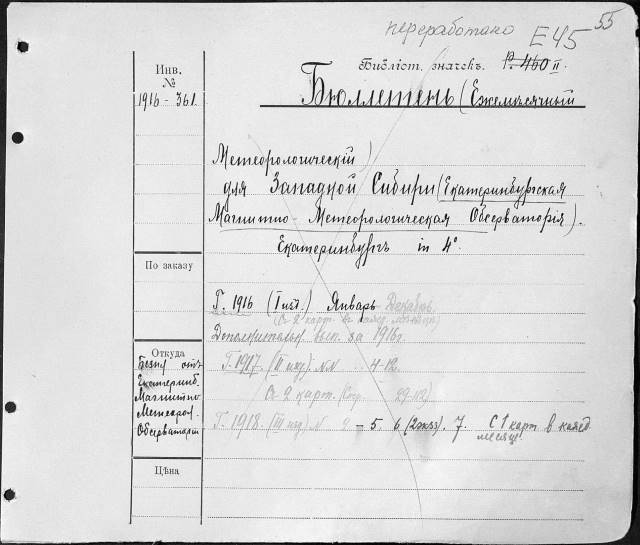 переработано Е45 55
Библiот. значекъ. Р. 460 II.
Инв. №
1916 - 361.
Бюллетень (Ежемѣсячный
Метеорологическiй)
для Западной Сибири (Екатеринбургская
Магнитно-Метеорологическая Обсерваторiя).
Екатеринбургъ in 4°.
По заказу
Г. 1916 (I изд.) Январь Декабрь.
(С 2 карт. в кажд. мѣсяцѣ)
Дополнительн. вып. за 1916 г.
Откуда
Безпл отъ
Екатеринб.
Магнитно-
Метеорол.
Обсерваторiи
Г. 1917. (II изд.) NN 4-12.
Са 2 карт. 29-12)
Г. 1918. (III изд.) N 2 - 5. 6 (2экз). 7. С 1 карт в кажд
месяце
Цѣна